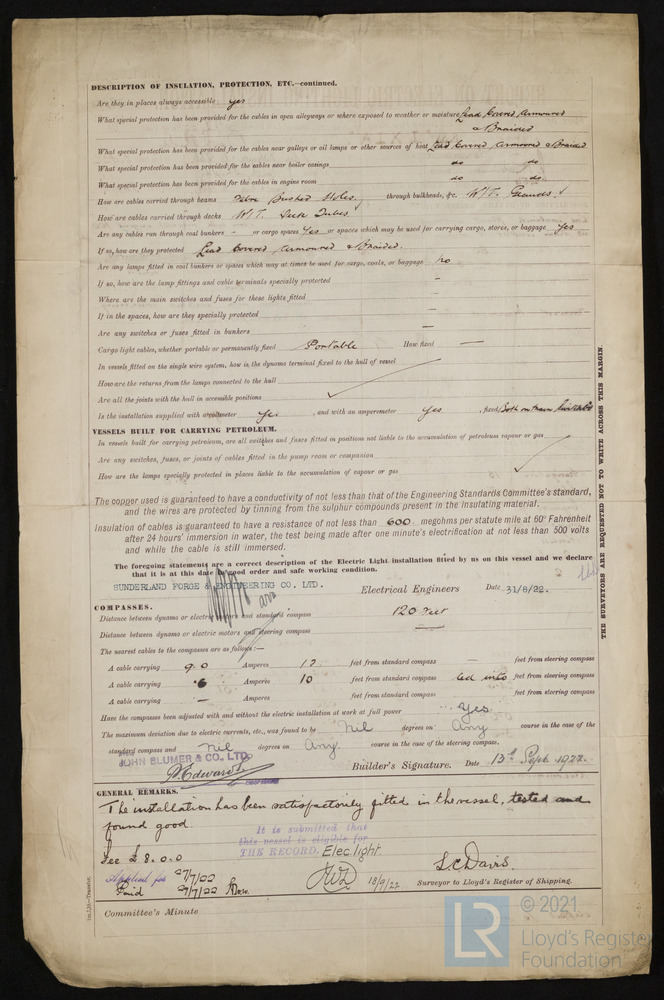 DESCRIPTION OF INSULATION, PROTECTION, ETC.—continued.
Are they in places always accessible yes
What special protection has been provided for the cables in open alleyways or where exposed to weather or moisture Lead Covered Armoured
& Braided
What special protection has been provided for the cables near galleys or oil lamps or other sources of heat Lead Covered Armoured & Braided
What special protection has been provided for the cables near boiler casings do do
What special protection has been provided for the cables in engine room do do
How are cables carried through beams Fibre Bushed Holes through bulkheads, &c. W/T. Glands
How are cables carried through decks W/T. Deck Tubes
Are any cables run through coal bunkers - or cargo spaces Yes or spaces which may be used for carrying cargo, stores, or baggage Yes
If so, how are they protected Lead Covered Armoured & Braided.
Are any lamps fitted in coal bunkers or spaces which may at times be used for cargo, coals, or baggage No
If so, how are the lamp fittings and cable terminals specially protected -
Where are the main switches and fuses for these lights fitted —
If in the spaces, how are they specially protected —
Are any switches or fuses fitted in bunkers —
Cargo light cables, whether portable or permanently fixed Portable How fixed —
In vessels fitted on the single wire system, how is the dynamo terminal fixed to the hull of vessel
How are the returns from the lamps connected to the hull
Are all the joints with the hull in accessible positions
Is the installation supplied with a voltmeter Yes , and with an amperemeter yes , fixed Both on main Switchbd
VESSELS BUILT FOR CARRYING PETROLEUM.
In vessels built for carrying petroleum, are all switches and fuses fitted in positions not liable to the accumulation of petroleum vapour or gas
Are any switches, fuses, or joints of cables fitted in the pump room or companion
How are the lamps specially protected in places liable to the accumulation of vapour or gas
The copper used is guaranteed to have a conductivity of not less than that of the Engineering Standards Committee's standard,
and the wires are protected by tinning from the sulphur compounds present in the insulating material.
Insulation of cables is guaranteed to have a resistance of not less than 600 megohms per statute mile at 60° Fahrenheit
after 24 hours' immersion in water, the test being made after one minute's electrification at not less than 500 volts
and while the cable is still immersed.
The foregoing statements are a correct description of the Electric Light installation fitted by us on this vessel and we declare
that it is at this date in good order and safe working condition.
SUNDERLAND FORGE & ENGINEERING CO. LTD. Electrical Engineers Date 31/8/22.
COMPASSES.
Distance between dynamo or electric motors and standard compass 120 Feet
Distance between dynamo or electric motors and steering compass —
The nearest cables to the compasses are as follows:—
A cable carrying 9.0 Amperes 12 feet from standard compass — feet from steering compass
A cable carrying .6 Amperes 10 feet from standard compass led into feet from steering compass
A cable carrying — Amperes feet from standard compass feet from steering compass
Have the compasses been adjusted with and without the electric installation at work at full power Yes
The maximum deviation due to electric currents, etc., was found to be Nil degrees on Any course in the case of the
standard compass and nil degrees on Any. course in the case of the steering compass.
JOHN BLUMER & CO., LTD.
Edwards
Builder's Signature. Date 13th Sept. 1922.
GENERAL REMARKS.
The installation has been satisfactorily fitted in the vessel, tested and
found good.
It is submitted that
this vessel is eligible for
THE RECORD. Elec. light.
Fee £8.0.0
18/9/22
L.C. Davis.
Surveyor to Lloyd's Register of Shipping.
Applied for 27/7/22
Paid 29/7/22
Committee's Minute
THE SURVEYORS ARE REQUESTED NOT TO WRITE ACROSS THIS MARGIN.
LR
© 2021
Lloyd's Register
Foundation